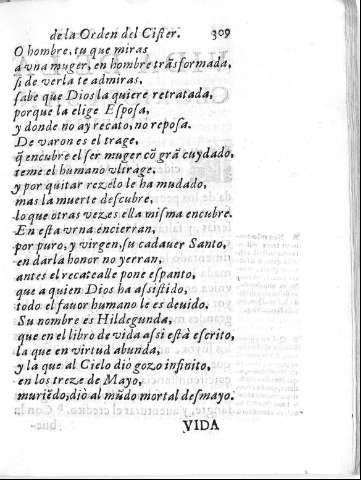 de la Orden del Cister. 309
O hombre, tu que miras
a vna muger, en hombre trãsformada,
si de verla te admiras,
sabe que Dios la quiere retratada,
porque la elige Esposa,
y donde no ay recato, no reposa.
De varon es el trage,
q̃ encubre el ser muger cõ grã cuydado,
teme el humano vltrage,
y por quitar rezelo le ha mudado,
mas la muerte descubre,
lo que otras vezes ella misma encubre.
En esta vrna encierran,
por puro, y virgen, su cadauer Santo,
en darla honor no yerran,
antes el recatealle pone espanto,
que a quien Dios ha assistido,
todo el fauor humano le es deuido.
Su nombre es Hildegunda,
que en el libro de vida assi està escrito,
la que en virtud abunda,
y la que al Cielo diò gozo infinito,
en los treze de Mayo,
muriẽdo, diò al mũdo mortal desmayo.
VIDA